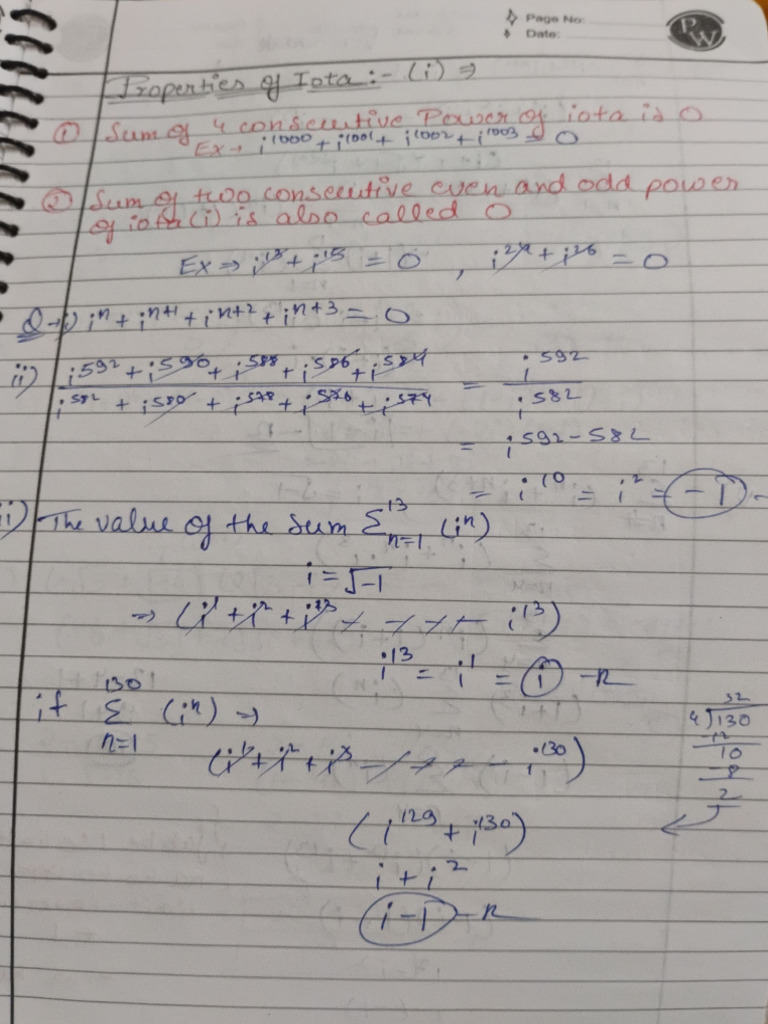 Page No:
Date:
PW
Properties of Iota :- (i) ⇒
① Sum of 4 consecutive Power of iota is 0
Ex → i¹⁰⁰⁰ + i¹⁰⁰¹ + i¹⁰⁰² + i¹⁰⁰³ = 0
② Sum of two consecutive even and odd power
of iota (i) is also called 0
Ex ⇒ i¹³ + i¹⁵ = 0 , i²⁴ + i²⁶ = 0
Q → i) iⁿ + iⁿ⁺¹ + iⁿ⁺² + iⁿ⁺³ = 0
ii) i⁵⁹² + i⁵⁹⁰ + i⁵⁸⁸ + i⁵⁸⁶ + i⁵⁸⁴ = i⁵⁹²
i⁵⁸² + i⁵⁸⁰ + i⁵⁷⁸ + i⁵⁷⁶ + i⁵⁷⁴ i⁵⁸²
= i⁵⁹²⁻⁵⁸²
= i¹⁰ = i² = -1
i) The value of the sum Σ¹³ₙ₌₁ (iⁿ)
i = √-1
⇒ (i¹ + i² + i³ + - - + - i¹³)
i¹³ = i¹ = i
if 130 Σ n=1 (iⁿ) →
(i¹ + i² + i³ - - - - - i¹³⁰)
32
4)130
-12
10
-8
2
(i¹²⁹ + i¹³⁰)
i + i²
i-1